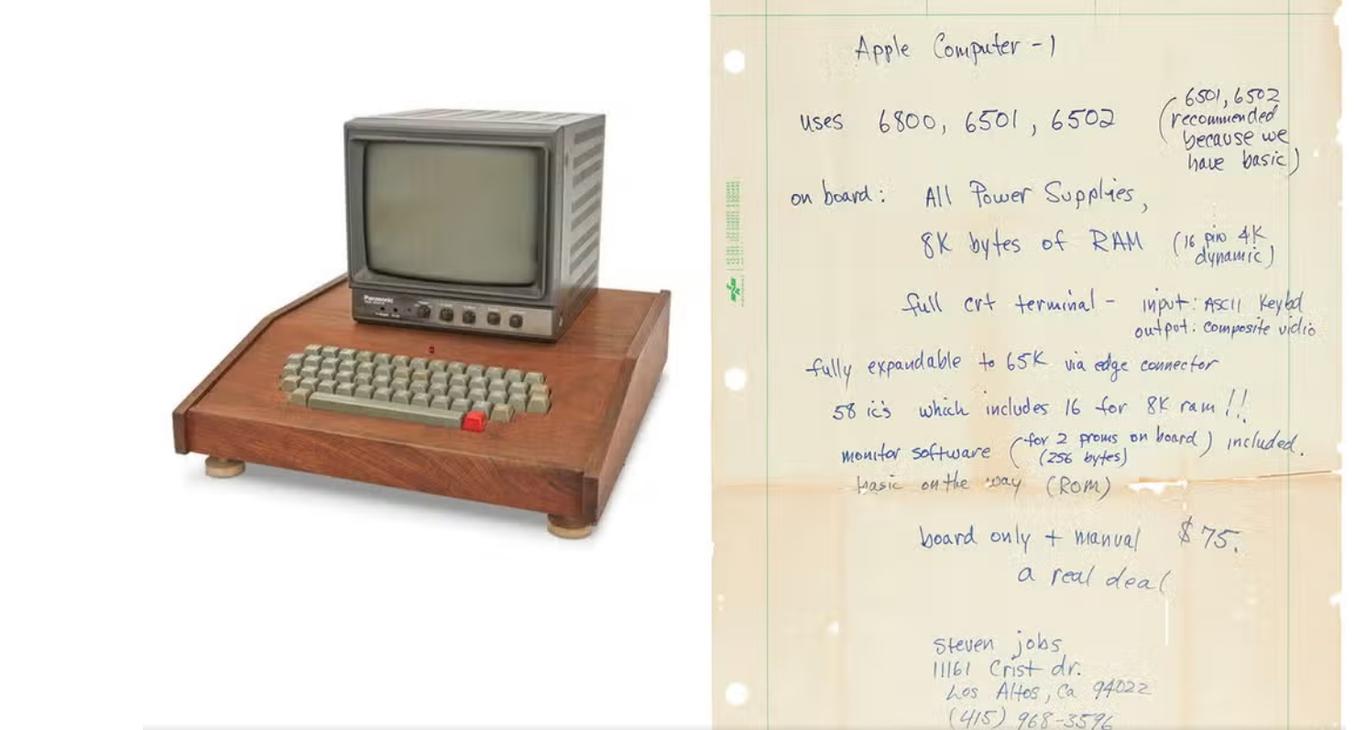 Panasonic
Apple Computer - 1
uses 6800, 6501, 6502
( 6501, 6502
recommended
because we
have basic)
on board: All Power Supplies,
8K bytes of RAM (16 pin 4K
dynamic)
full crt terminal - input: ASCII Keybd
output: composite vidio
fully expandable to 65K via edge connector
58 ic's which includes 16 for 8K ram !!
monitor software (for 2 proms on board) included.
(256 bytes)
basic on the way (ROM)
board only + manual $75.
a real deal
Steven jobs
11161 Crist dr.
Los Altos, Ca 94022
(415) 968-3596